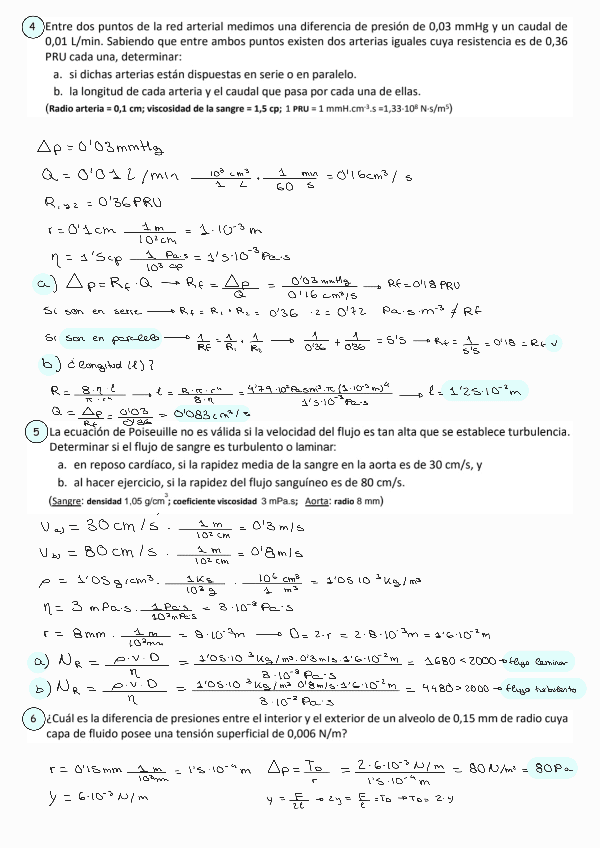 4 Entre dos puntos de la red arterial medimos una diferencia de presión de 0,03 mmHg y un caudal de
0,01 L/min. Sabiendo que entre ambos puntos existen dos arterias iguales cuya resistencia es de 0,36
PRU cada una, determinar:
a. si dichas arterias están dispuestas en serie o en paralelo.
b. la longitud de cada arteria y el caudal que pasa por cada una de ellas.
(Radio arteria = 0,1 cm; viscosidad de la sangre = 1,5 cp; 1 PRU = 1 mmH.cm⁻³.s =1,33·10⁸ N·s/m⁵)
Δp = 0'03 mmHg
Q = 0'01 L/min 10³ cm³/1 L · 1/60 min/s = 0'16 cm³/s
R₁,y₂ = 0'36 PRU
r = 0'1 cm 1 m/10² cm = 1·10⁻³ m
η = 1'5 cp 1 Pa·s/10³ cp = 1'5·10⁻³ Pa·s
a) Δp = Rf · Q → Rf = Δp/Q = 0'03 mmHg/0'16 cm³/s → Rf = 0'18 PRU
Si son en serie → Rf = R₁ + R₂ = 0'36 · 2 = 0'72 Pa·s·m⁻³ ≠ Rf
Si son en paralelo → 1/Rf = 1/R₁ + 1/R₂ → 1/0'36 + 1/0'36 = 5'5 → Rf = 1/5'5 = 0'18 = Rf ✓
b) ¿longitud (l)?
R = 8·η·l/π·r⁴ → l = R·π·r⁴/8·η = 4'79·10⁷ Pa·s·m³·π(1·10⁻³ m)⁴/1'5·10⁻³ Pa·s → l = 1'25·10⁻² m
Q = Δp/Rf = 0'03/0'36 = 0'083 cm³/s
5 La ecuación de Poiseuille no es válida si la velocidad del flujo es tan alta que se establece turbulencia.
Determinar si el flujo de sangre es turbulento o laminar:
a. en reposo cardíaco, si la rapidez media de la sangre en la aorta es de 30 cm/s, y
b. al hacer ejercicio, si la rapidez del flujo sanguíneo es de 80 cm/s.
(Sangre: densidad 1,05 g/cm³; coeficiente viscosidad 3 mPa.s; Aorta: radio 8 mm)
Va) = 30 cm/s · 1 m/10² cm = 0'3 m/s
Vb) = 80 cm/s · 1 m/10² cm = 0'8 m/s
ρ = 1'05 g/cm³ · 1 Kg/10³ g · 10⁶ cm³/1 m³ = 1'05·10³ Kg/m³
η = 3 mPa·s · 1 Pa·s/10³ mPa·s = 3·10⁻³ Pa·s
r = 8 mm · 1 m/10³ mm = 8·10⁻³ m → D = 2·r = 2·8·10⁻³ m = 1'6·10⁻² m
a) NR = ρ·v·D/η = 1'05·10³ Kg/m³·0'3 m/s·1'6·10⁻² m/3·10⁻³ Pa·s = 1680 < 2000 → flujo laminar
b) NR = ρ·v·D/η = 1'05·10³ Kg/m³ 0'8 m/s·1'6·10⁻² m/3·10⁻³ Pa·s = 4480 > 2000 → flujo turbulento
6 ¿Cuál es la diferencia de presiones entre el interior y el exterior de un alveolo de 0,15 mm de radio cuya
capa de fluido posee una tensión superficial de 0,006 N/m?
r = 0'15 mm 1 m/10³ mm = 1'5·10⁻⁴ m Δp = TD/r = 2·6·10⁻³ N/m/1'5·10⁻⁴ m = 80 N/m² = 80 Pa
γ = 6·10⁻³ N/m γ = F/2l → 2γ = F/l = TD → TD = 2·γ